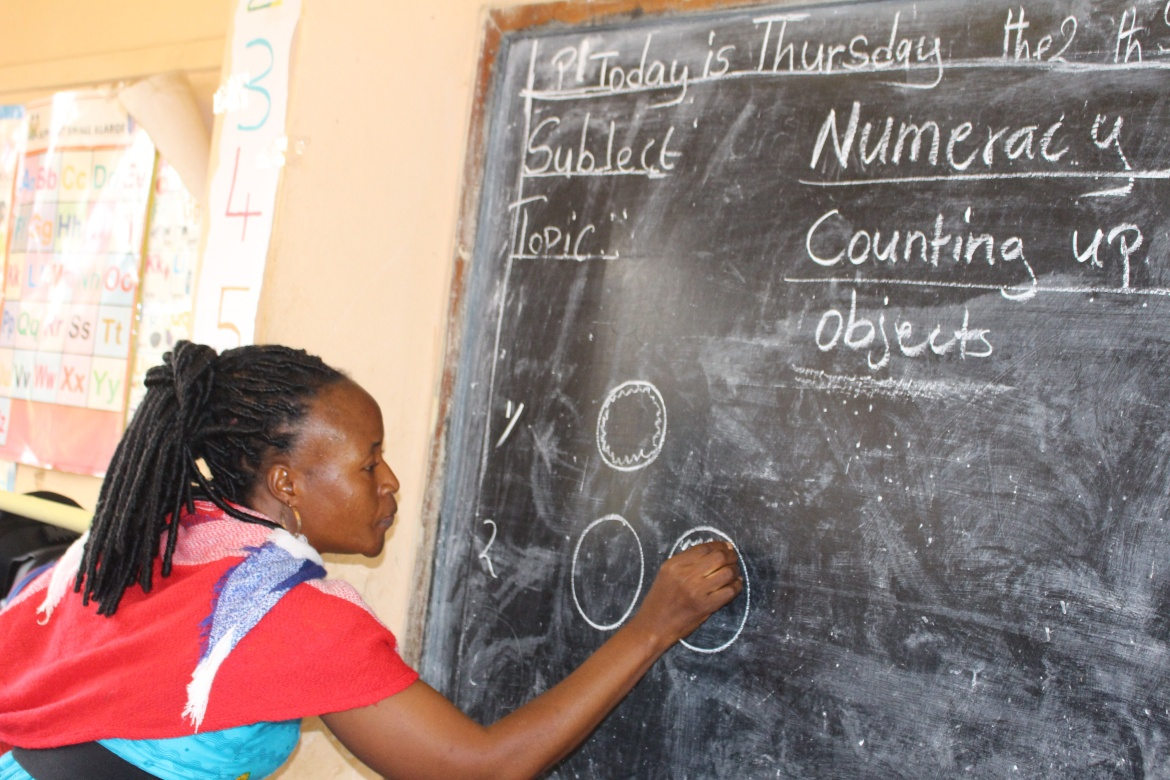 2
3
4
5
Bb Cc D
Gg Hh I
Oo
Pp Qq Rr Ss Tt
Vv Ww Xx Yy
P1 Today is Thursday the 2 th
Subject:
Numeracy
Topic:
Counting up
objects
1
2